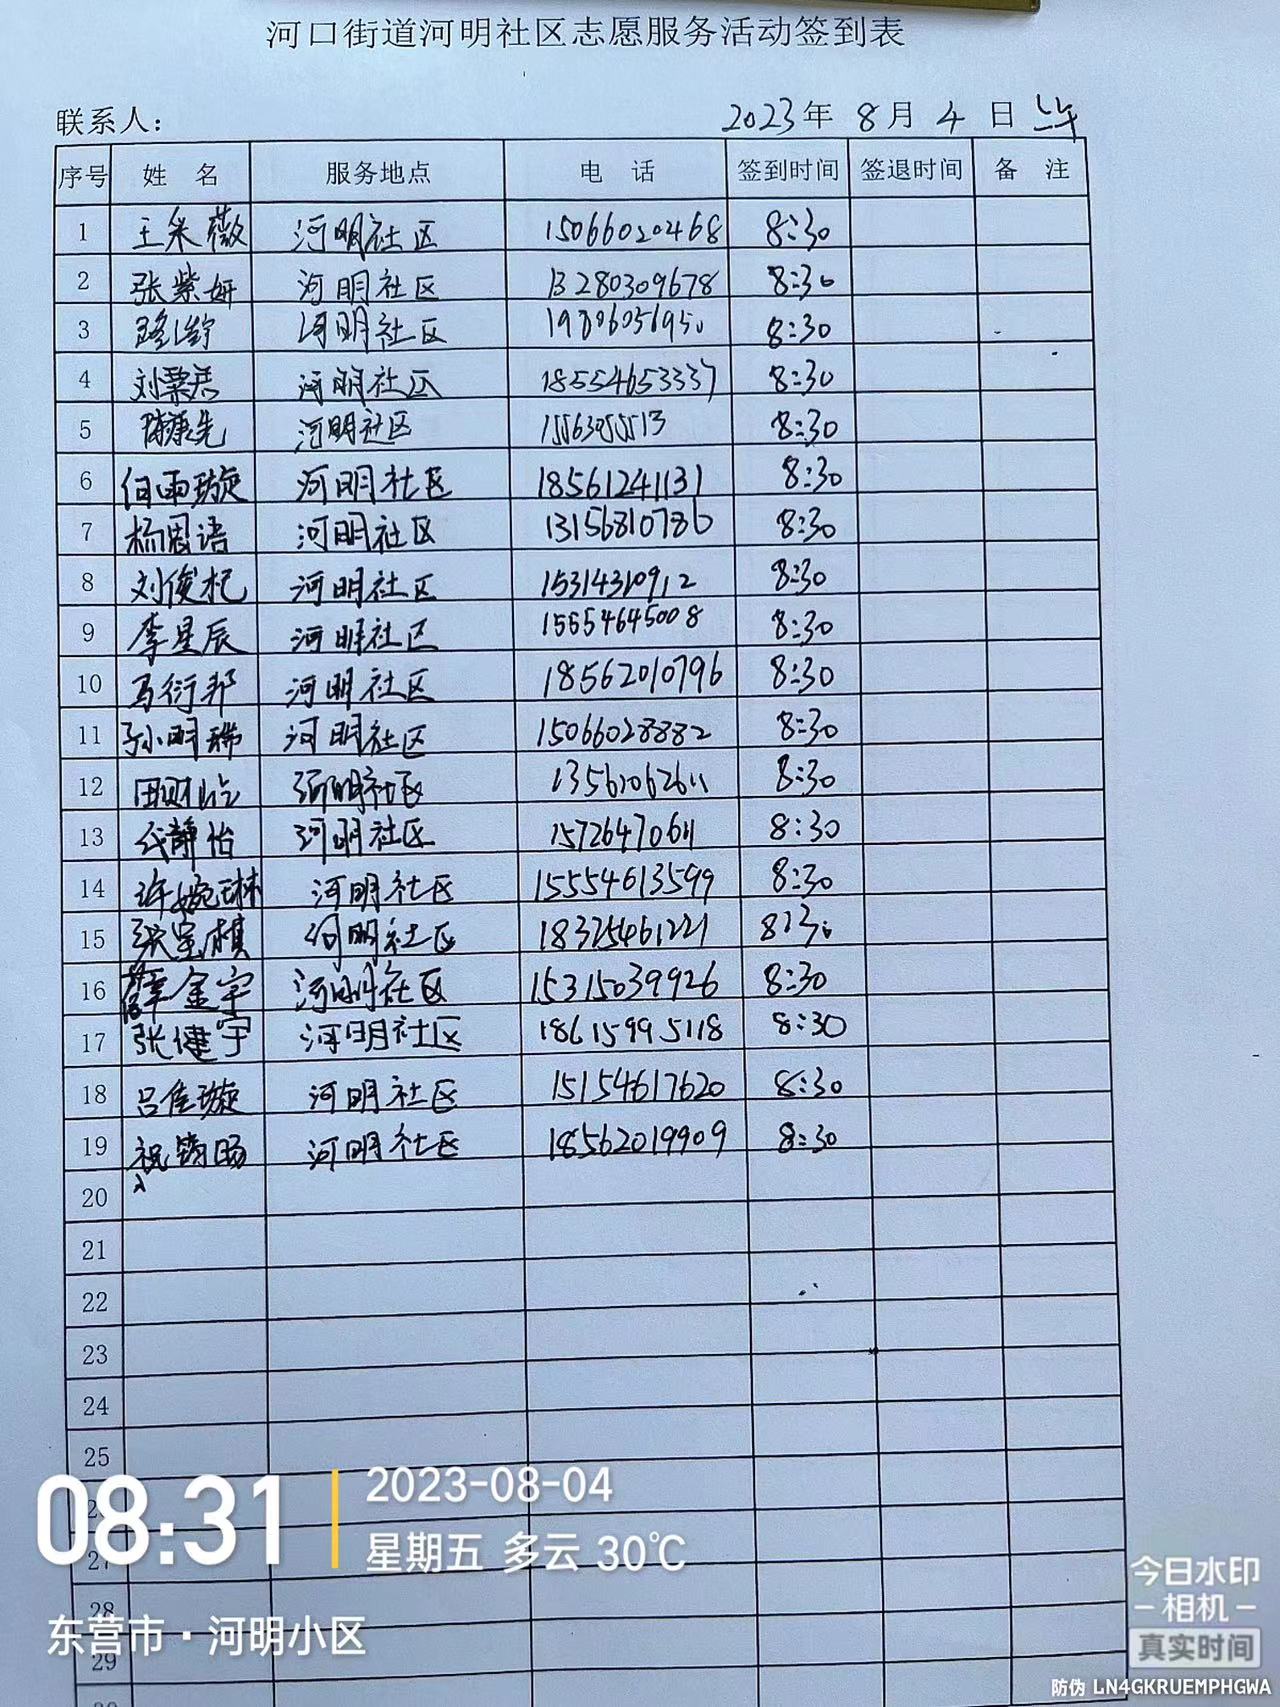 河口街道河明社区志愿服务活动签到表
联系人： 2023年 8月 4 日 上午
序号 姓 名 服务地点 电 话 签到时间 签退时间 备 注
1 王采薇 河明社区 15066020468 8:30
2 张紫妍 河明社区 13280309678 8:30
3 河明社区 8:30
4 河明社区 18554653337 8:30
5 陈康先 河明社区 15563055513 8:30
6 河明社区 18561241131 8:30
7 杨恩语 河明社区 13156810786 8:30
8 刘俊杞 河明社区 15314310912 8:30
9 李星辰 河明社区 8:30
10 马衍邦 河明社区 18562010796 8:30
11 孙明瑞 河明社区 15066028882 8:30
12 河明社区 13561062611 8:30
13 代静怡 河明社区 15726470611 8:30
14 许婉琳 河明社区 15554613599 8:30
15 张宝棋 河明社区 18325461221 8:30
16 薛金宇 河明社区 15315039926 8:30
17 张健宇 河明社区 18615995118 8:30
18 吕佳璇 河明社区 15154617620 8:30
19 河明社区 18562019909 8:30
20
21
22
23
24
25
27
28
29
08:31
2023-08-04
星期五 多云 30℃
东营市·河明小区
今日水印
-相机-
真实时间
防伪 LN4GKRUEMPHGWA